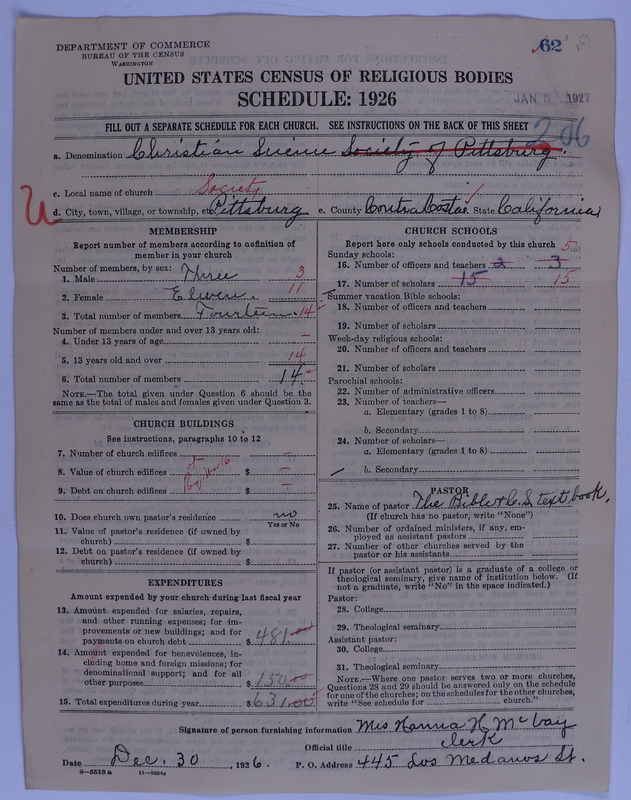 62
DEPARTMENT OF COMMERCE
BUREAU OF THE CENSUS
WASHINGTON
UNITED STATES CENSUS OF RELIGIOUS BODIES
SCHEDULE: 1926
JAN 5 1927
FILL OUT A SEPARATE SCHEDULE FOR EACH CHURCH. SEE INSTRUCTIONS ON THE BACK OF THIS SHEET
206
a. Denomination Christian Science Society of Pittsburg.
c. Local name of church Society
U d. City, town, village, or township, etc. Pittsburg e. County Contra Costa. State California
MEMBERSHIP
Report number of members according to definition of
member in your church
Number of members, by sex:
1. Male Three 3
2. Female Eleven. 11
3. Total number of members Fourteen. 14
Number of members under and over 13 years old:
4. Under 13 years of age —
5. 13 years old and over 14
6. Total number of members 14
NOTE.—The total given under Question 6 should be the
same as the total of males and females given under Question 3.
CHURCH BUILDINGS
See instructions, paragraphs 10 to 12
7. Number of church edifices —
8. Value of church edifices $ —
9. Debt on church edifices $ —
10. Does church own pastor's residence no
Yes or No
11. Value of pastor's residence (if owned by
church) $
12. Debt on pastor's residence (if owned by
church) $
EXPENDITURES
Amount expended by your church during last fiscal year
13. Amount expended for salaries, repairs,
and other running expenses; for im-
provements or new buildings; and for
payments on church debt $ 481.00
14. Amount expended for benevolences, in-
cluding home and foreign missions; for
denominational support; and for all
other purposes $ 150.00
15. Total expenditures during year $ 631.00
CHURCH SCHOOLS
Report here only schools conducted by this church 5
Sunday schools:
16. Number of officers and teachers 2 3
17. Number of scholars 15 15
Summer vacation Bible schools:
18. Number of officers and teachers
19. Number of scholars
Week-day religious schools:
20. Number of officers and teachers
21. Number of scholars
Parochial schools:
22. Number of administrative officers
23. Number of teachers—
a. Elementary (grades 1 to 8)
b. Secondary
24. Number of scholars—
a. Elementary (grades 1 to 8)
b. Secondary
PASTOR
25. Name of pastor The Bible & C. S. text book.
(If church has no pastor, write "None")
26. Number of ordained ministers, if any, em-
ployed as assistant pastors
27. Number of other churches served by the
pastor or his assistants
If pastor (or assistant pastor) is a graduate of a college or
theological seminary, give name of institution below. (If
not a graduate, write "No" in the space indicated.)
Pastor:
28. College
29. Theological seminary
Assistant pastor:
30. College
31. Theological seminary
NOTE.—Where one pastor serves two or more churches,
Questions 28 and 29 should be answered only on the schedule
for one of the churches; on the schedules for the other churches,
write "See schedule for church."
Signature of person furnishing information Mrs Hanna H. McVay
Official title Clerk
Date Dec. 30, 1926. P. O. Address 445 Los Medanos St.
8—5518 a 11—9054a